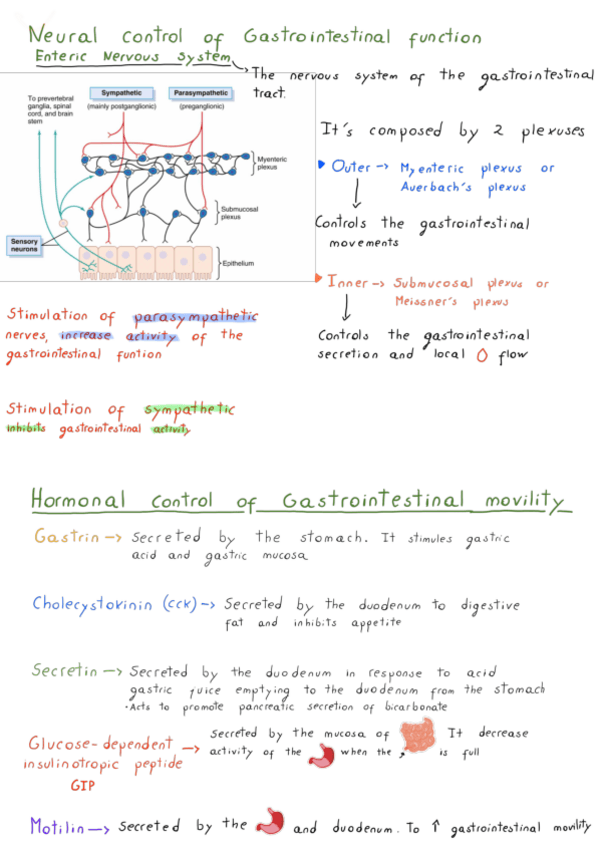 Neural control of Gastrointestinal function
Enteric Nervous system
The nervous system of the gastrointestinal
tract.
To prevertebral
ganglia, spinal
cord, and brain
stem
Sympathetic
(mainly postganglionic)
Parasympathetic
(preganglionic)
Myenteric
plexus
Submucosal
plexus
Sensory
neurons
Epithelium
It's composed by 2 plexuses
Outer → Myenteric plexus or
Auerbach's plexus
Controls the gastrointestinal
movements
Inner → Submucosal plexus or
Meissner's plexus
Controls the gastrointestinal
secretion and local flow
Stimulation of parasympathetic
nerves, increase activity of the
gastrointestinal funtion
Stimulation of sympathetic
inhibits gastrointestinal activity
Hormonal control of Gastrointestinal movility
Gastrin → Secreted by the stomach. It stimules gastric
acid and gastric mucosa
Cholecystokinin (CCK) → Secreted by the duodenum to digestive
fat and inhibits appetite
Secretin → Secreted by the duodenum in response to acid
gastric juice emptying to the duodenum from the stomach
• Acts to promote pancreatic secretion of bicarbonate
Glucose-dependent
insulinotropic peptide
GIP
→ Secreted by the mucosa of It decrease
activity of the when the , is full
Motilin → Secreted by the and duodenum. To ↑ gastrointestinal movility